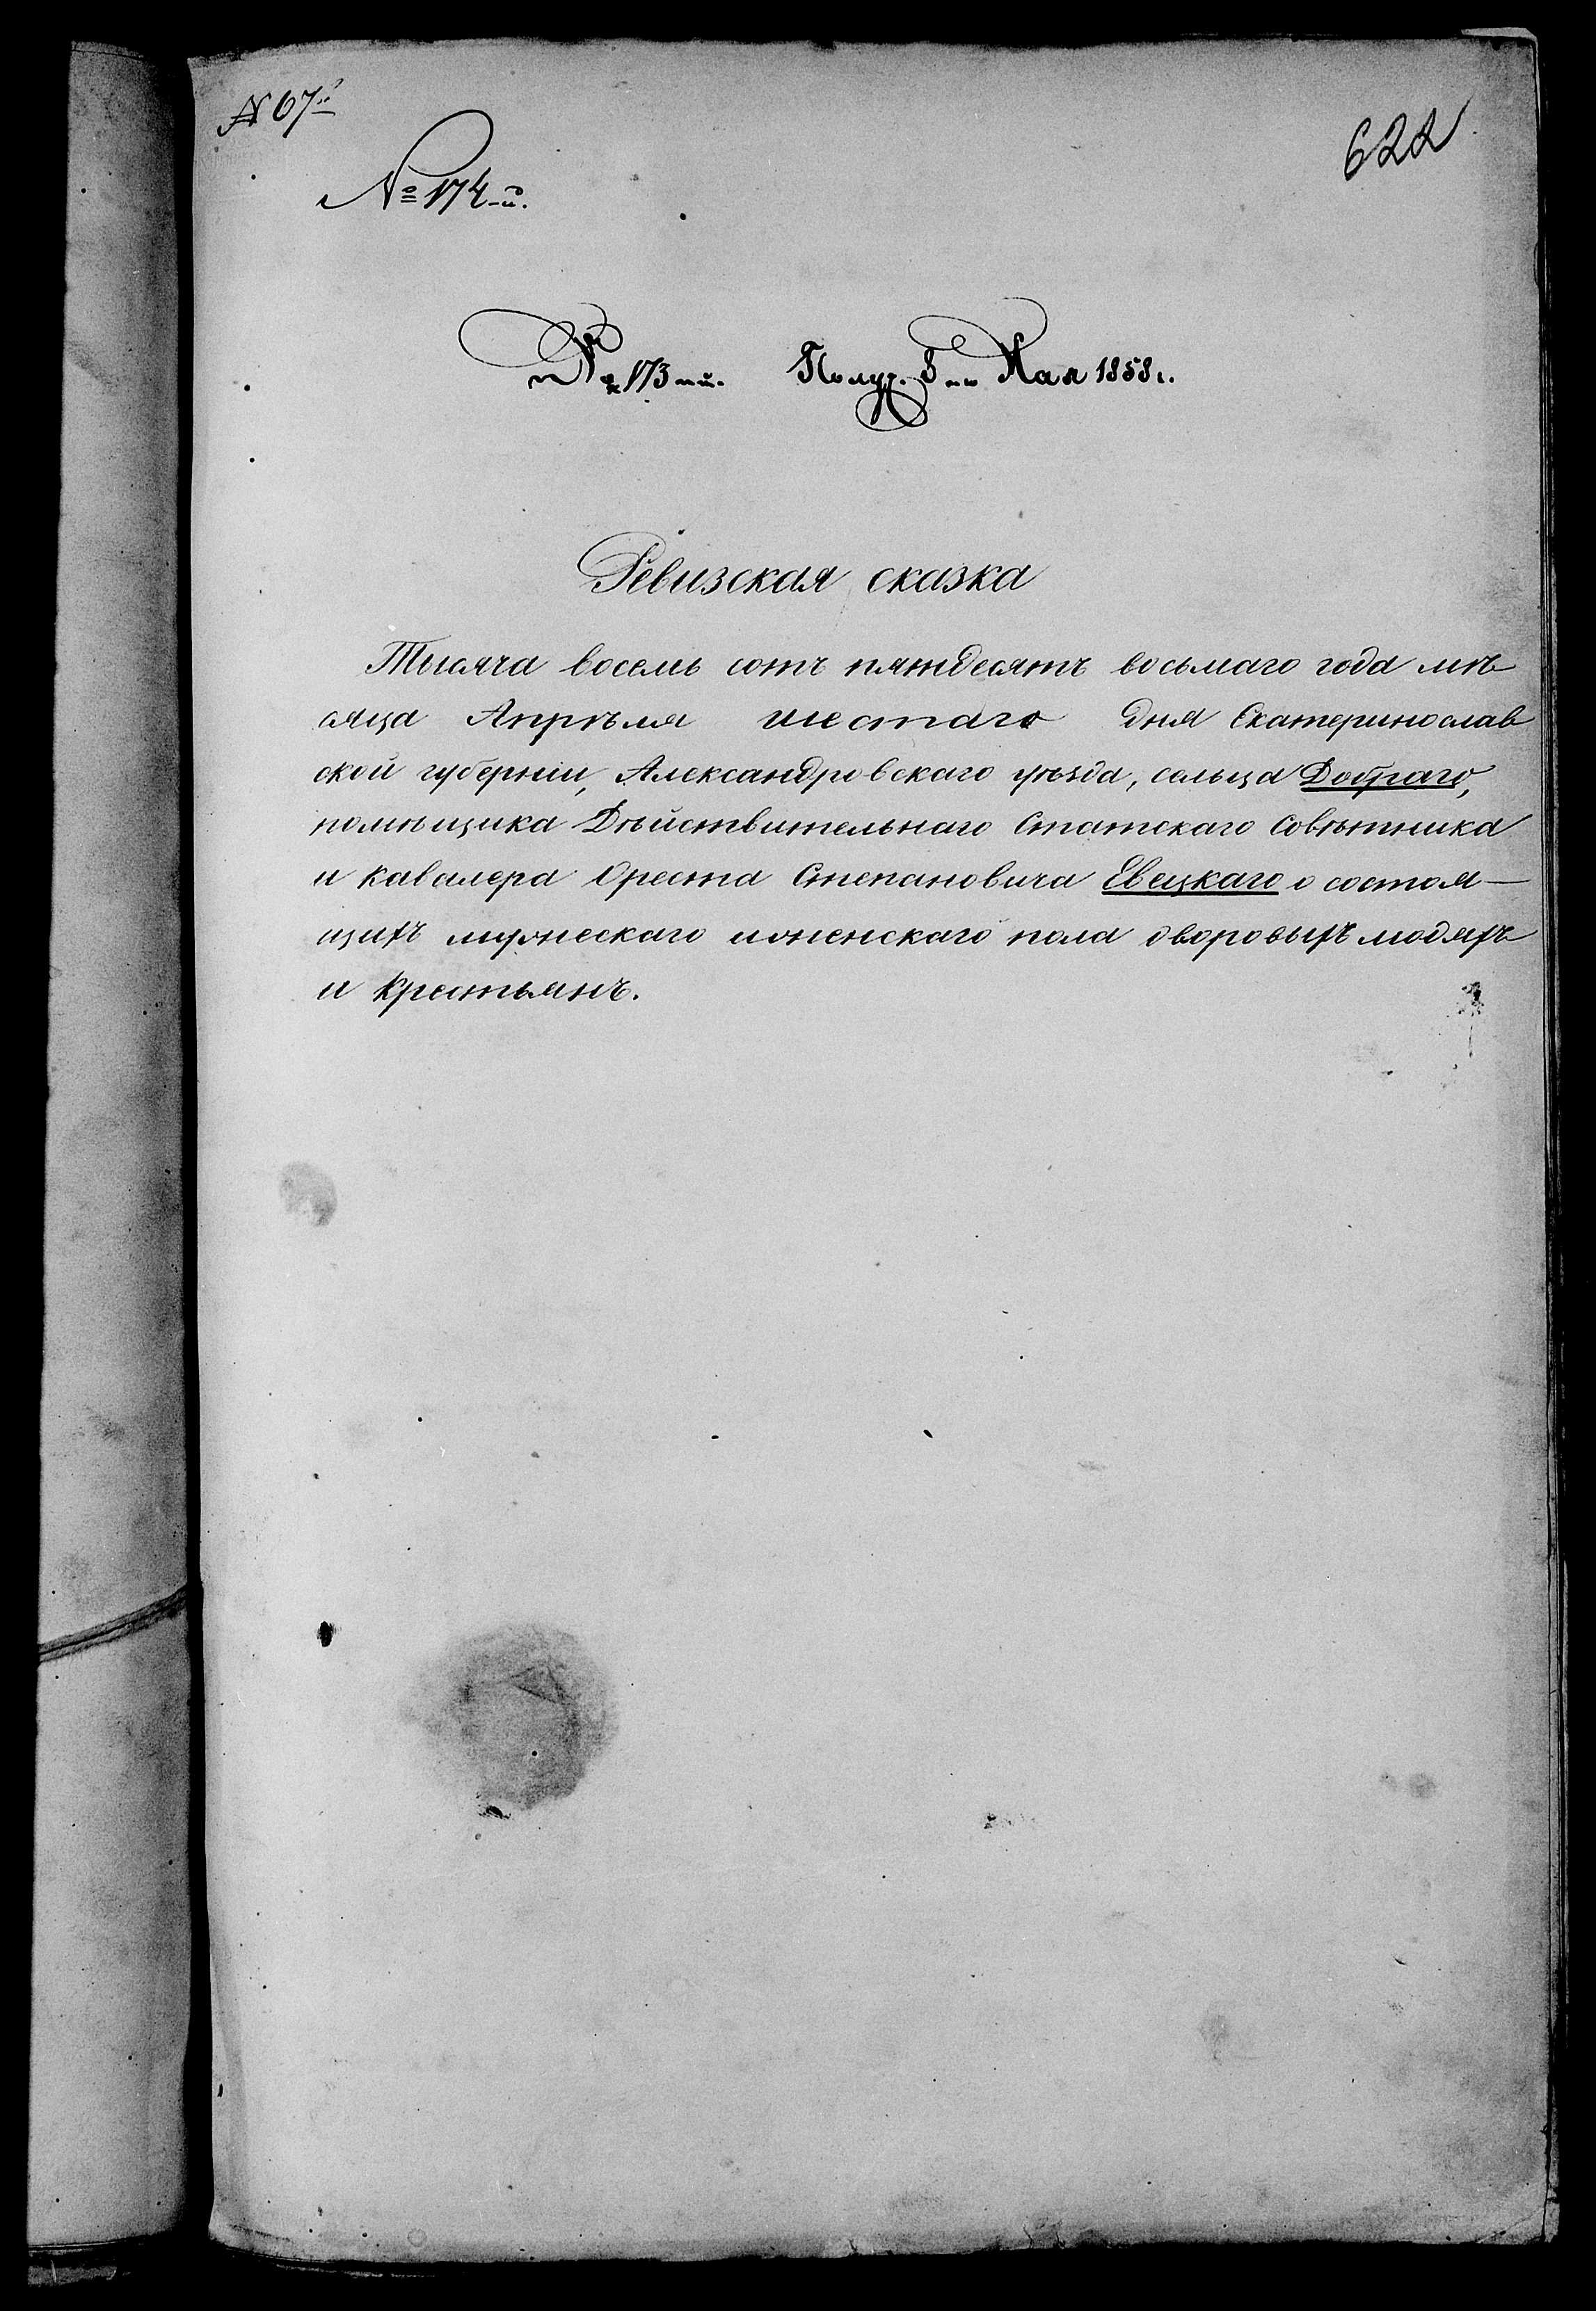 № 67й
622
№ 174-й.
№ 173-й. Получ. 8-го Мая 1858 г.
Ревизская сказка
Тысяча восемь сотъ пятьдесятъ восьмаго года мѣ
сяца Апрѣля шестаго дня Екатеринослав
ской губерніи, Александровскаго уѣзда, сельца Добраго,
помѣщика Дѣйствительнаго Статскаго Совѣтника
и Кавалера Ореста Степановича Евецкаго о состоя—
щихъ мужескаго и женскаго пола дворовыхъ людяхъ
и крестьянъ.